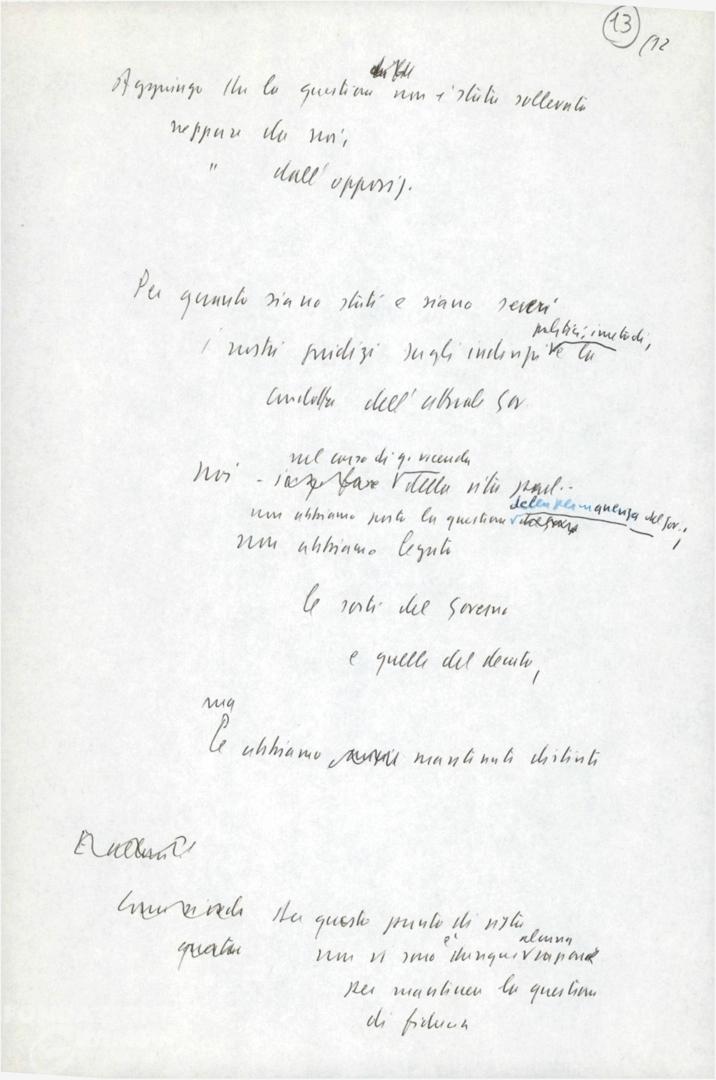 13 /12
Aggiungo che la questione non è stata sollevata
neppure da noi,
" dall'opposiz.
Per quanto siano stati e siano severi
politici, i metodi,
i nostri giudizi sugli indirizzi e la
condotta dell'attuale Gov.
nel corso di q. vicenda
noi - della vita parl. -
della permanenza del Gov.;
non abbiamo posto la questione
non abbiamo legato
le sorti del Governo
e quelle del decreto,
ma
le abbiamo mantenute distinte
Da questo punto di vista
è alcuna
non vi sono dunque ragione
per mantenere la questione
di fiducia